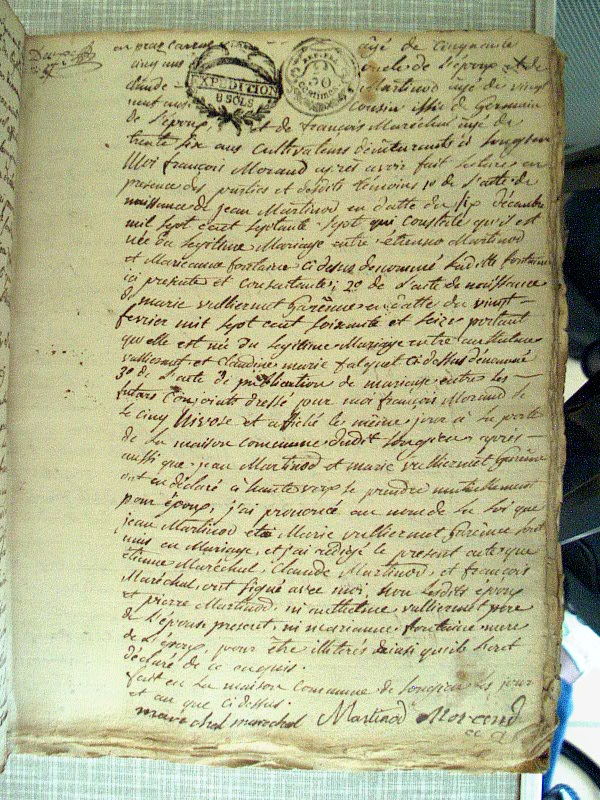 âgé de cinquante
cinq ans oncle de l'epoux et de
Claude Martinod âgé de vingt
neuf ans Cousin issu de Germain
EXPEDITION
8 SOLS
de l'epoux, et de françois Maréchal âgé de
trente six ans Cultivateurs
Moi françois Morand après avoir fait lecture en
presence des parties et desdits temoins 1º de l'acte de
naissance de jean Martinod en datte du six décembre
mil sept cent septante-sept qui constate qu'il est
née du legitime Mariage entre etienne Martinod
et Marieanne fontaine ci dessus denommé ladite fontaine
ici presente et consentante; 2º de l'acte de naissance
de marie vulliermet Garênne en datte du vingt-
fevrier mil sept cent soixante et seize portant
qu'elle est née du legitime Mariage entre anthelme
vulliermet et Claudine marie falquet ci dessus dénommé
3º de l'acte de publication de mariage entre les
futurs Conjoints dressé par moi françois Morand le
le cinq Nivose et affiché le même jour à la porte
de la maison commune dudit Longieu après-
aussi que jean Martinod et marie vulliermet Garênne
ont eu déclaré à haute voix se prendre mutuellement
pour époux, j'ai prononcé au nom de la loi que
jean Martinod et Marie vulliermet Garênne sont
unis en Mariage, et j'ai rédigé le present acte que
etienne Maréchal, Claude Martinod, et françois
Maréchal, ont signé avec moi, non lesdits époux
et pierre Martinod, ni anthelme vulliermet père
de l'épouse present, ni marianne fontaine mere
de l'époux, pour être illiterés ainsi qu'ils l'ont
déclaré de ce enquis.
fait en la maison Commune de Longieu les jour
et an que ci dessus.
marechal marechal Martinod Morand